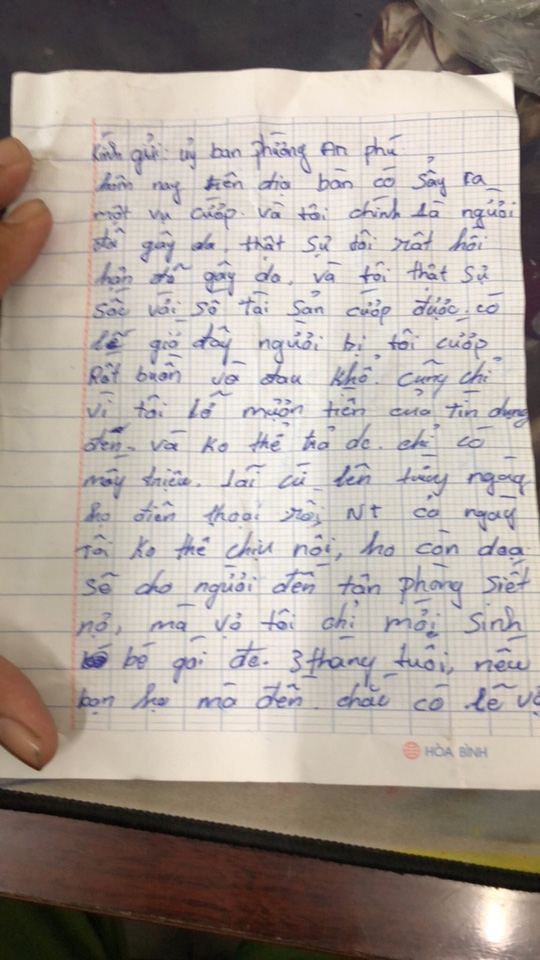 Kính gửi: uỷ ban phường An phú
hôm nay trên địa bàn có sảy ra
một vụ cướp. và tôi chính là người
đã gây da. thật sự tôi rất hối
hận đã gây da. và tôi thật sự
sốc với số tài sản cướp được. có
lẽ giờ đây người bị tôi cướp
Rất buồn và đau khổ. cũng chỉ
vì tôi lỡ mượn tiền của tín dụng
đen. và ko thể trả dc. chỉ có
mấy triệu. lãi cứ lên từng ngày
họ điện thoại rồi, NT cả ngày
Tôi ko thể chịu nổi, họ còn doạ
sẽ cho người đến tận phòng siết
nợ, mà vợ tôi chỉ mới sinh
bé gái dc. 3 tháng tuổi, nếu
bọn họ mà đến. chắc có lẽ vợ
HÒA BÌNH